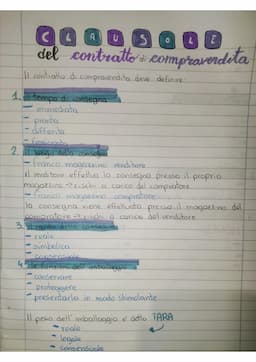 CLAUSOLE
del contratto di compravendita
Il contratto di compravendita deve definire
1. il tempo di consegna
- immediata
- pronta
- differita
2. il luogo della consegna
- franco magazzino venditore
Il venditore effettua la consegna presso il proprio
magazzino → a carico del compratore
- franco magazzino compratore
la consegna viene effettuata presso il magazzino del
compratore → a carico del venditore
3. consegna
- reale
- simbolica
- consensuale
4. le funzioni dell'imballaggio
- conservare
- proteggere
- presentarla in modo stimolante
Il peso dell'imballaggio è detto TARA
- reale
- legale
- consensuale